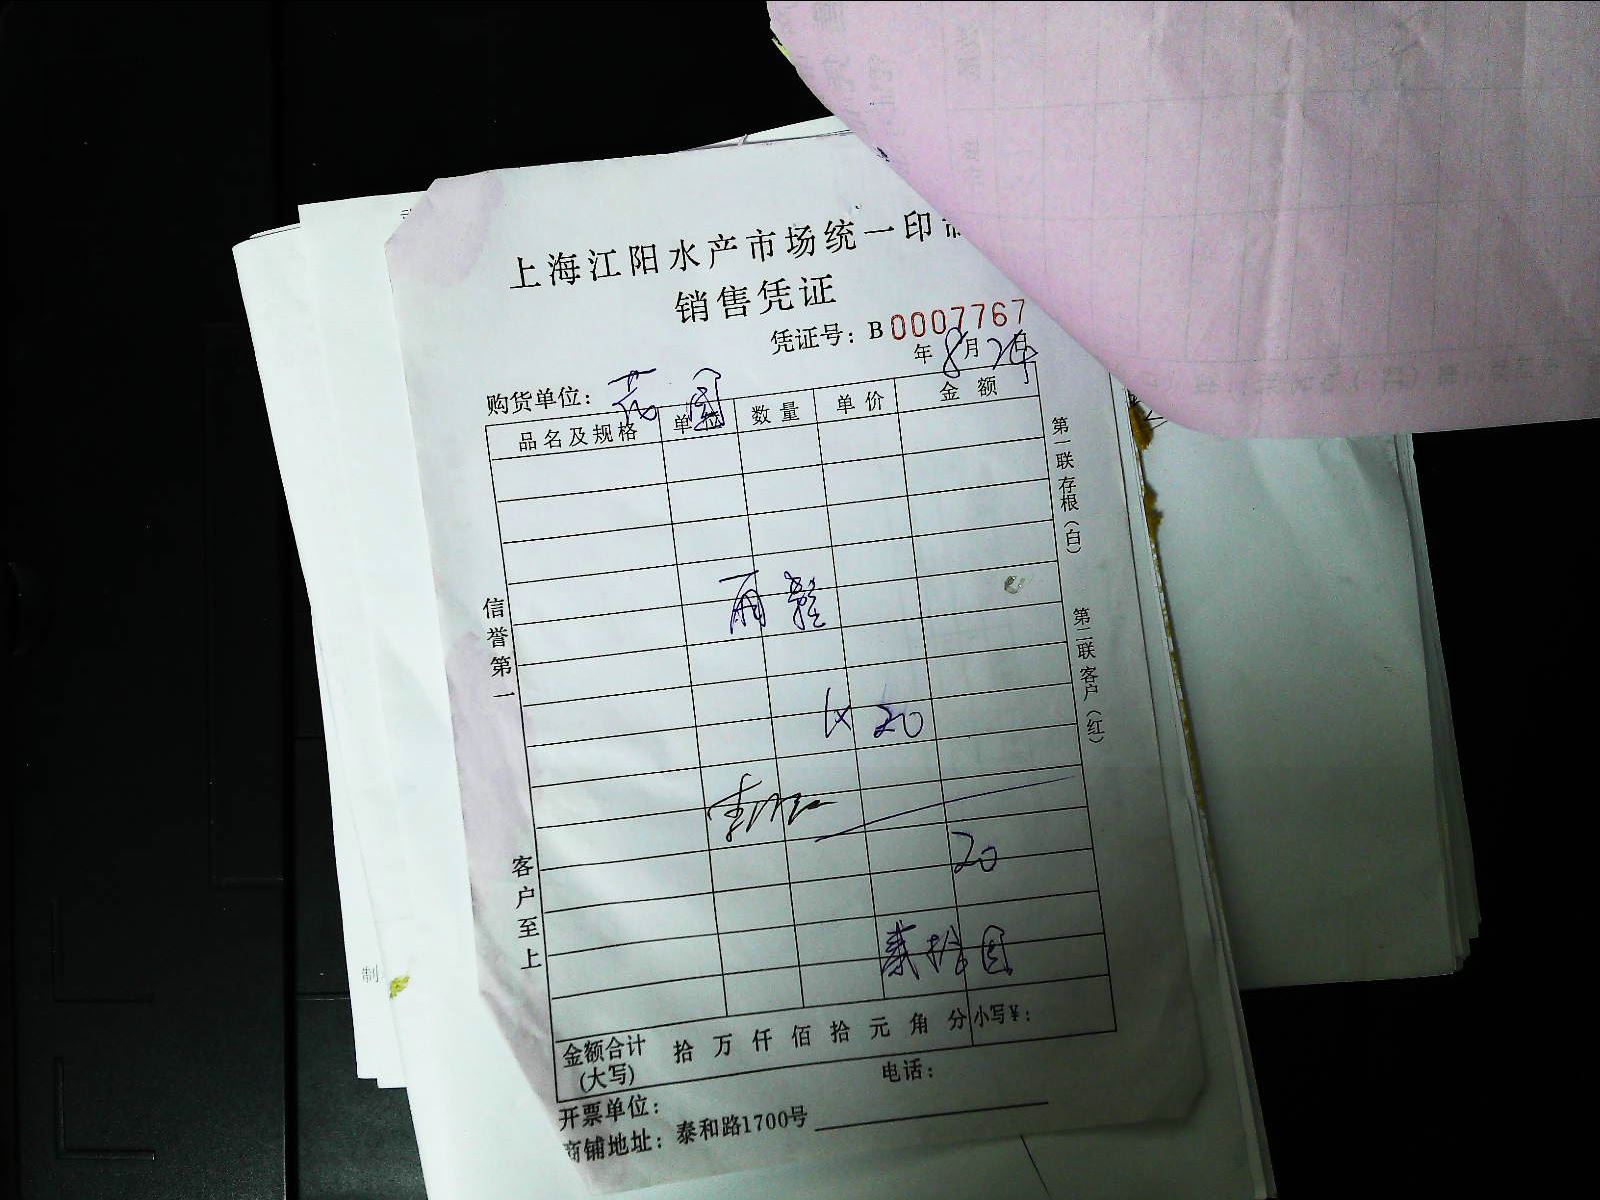 上海江阳水产市场统一印
销售凭证
凭证号：B 0007767
年 8 月 24 日
购货单位：花园
品名及规格 单位 数量 单价 金额
雨鞋
1× 20
20
贰拾圆
金额合计(大写) 拾 万 仟 佰 拾 元 角 分 小写¥：
开票单位： 电话：
商铺地址：泰和路1700号
信誉第一
客户至上
第一联存根（白）
第二联客户（红）
制